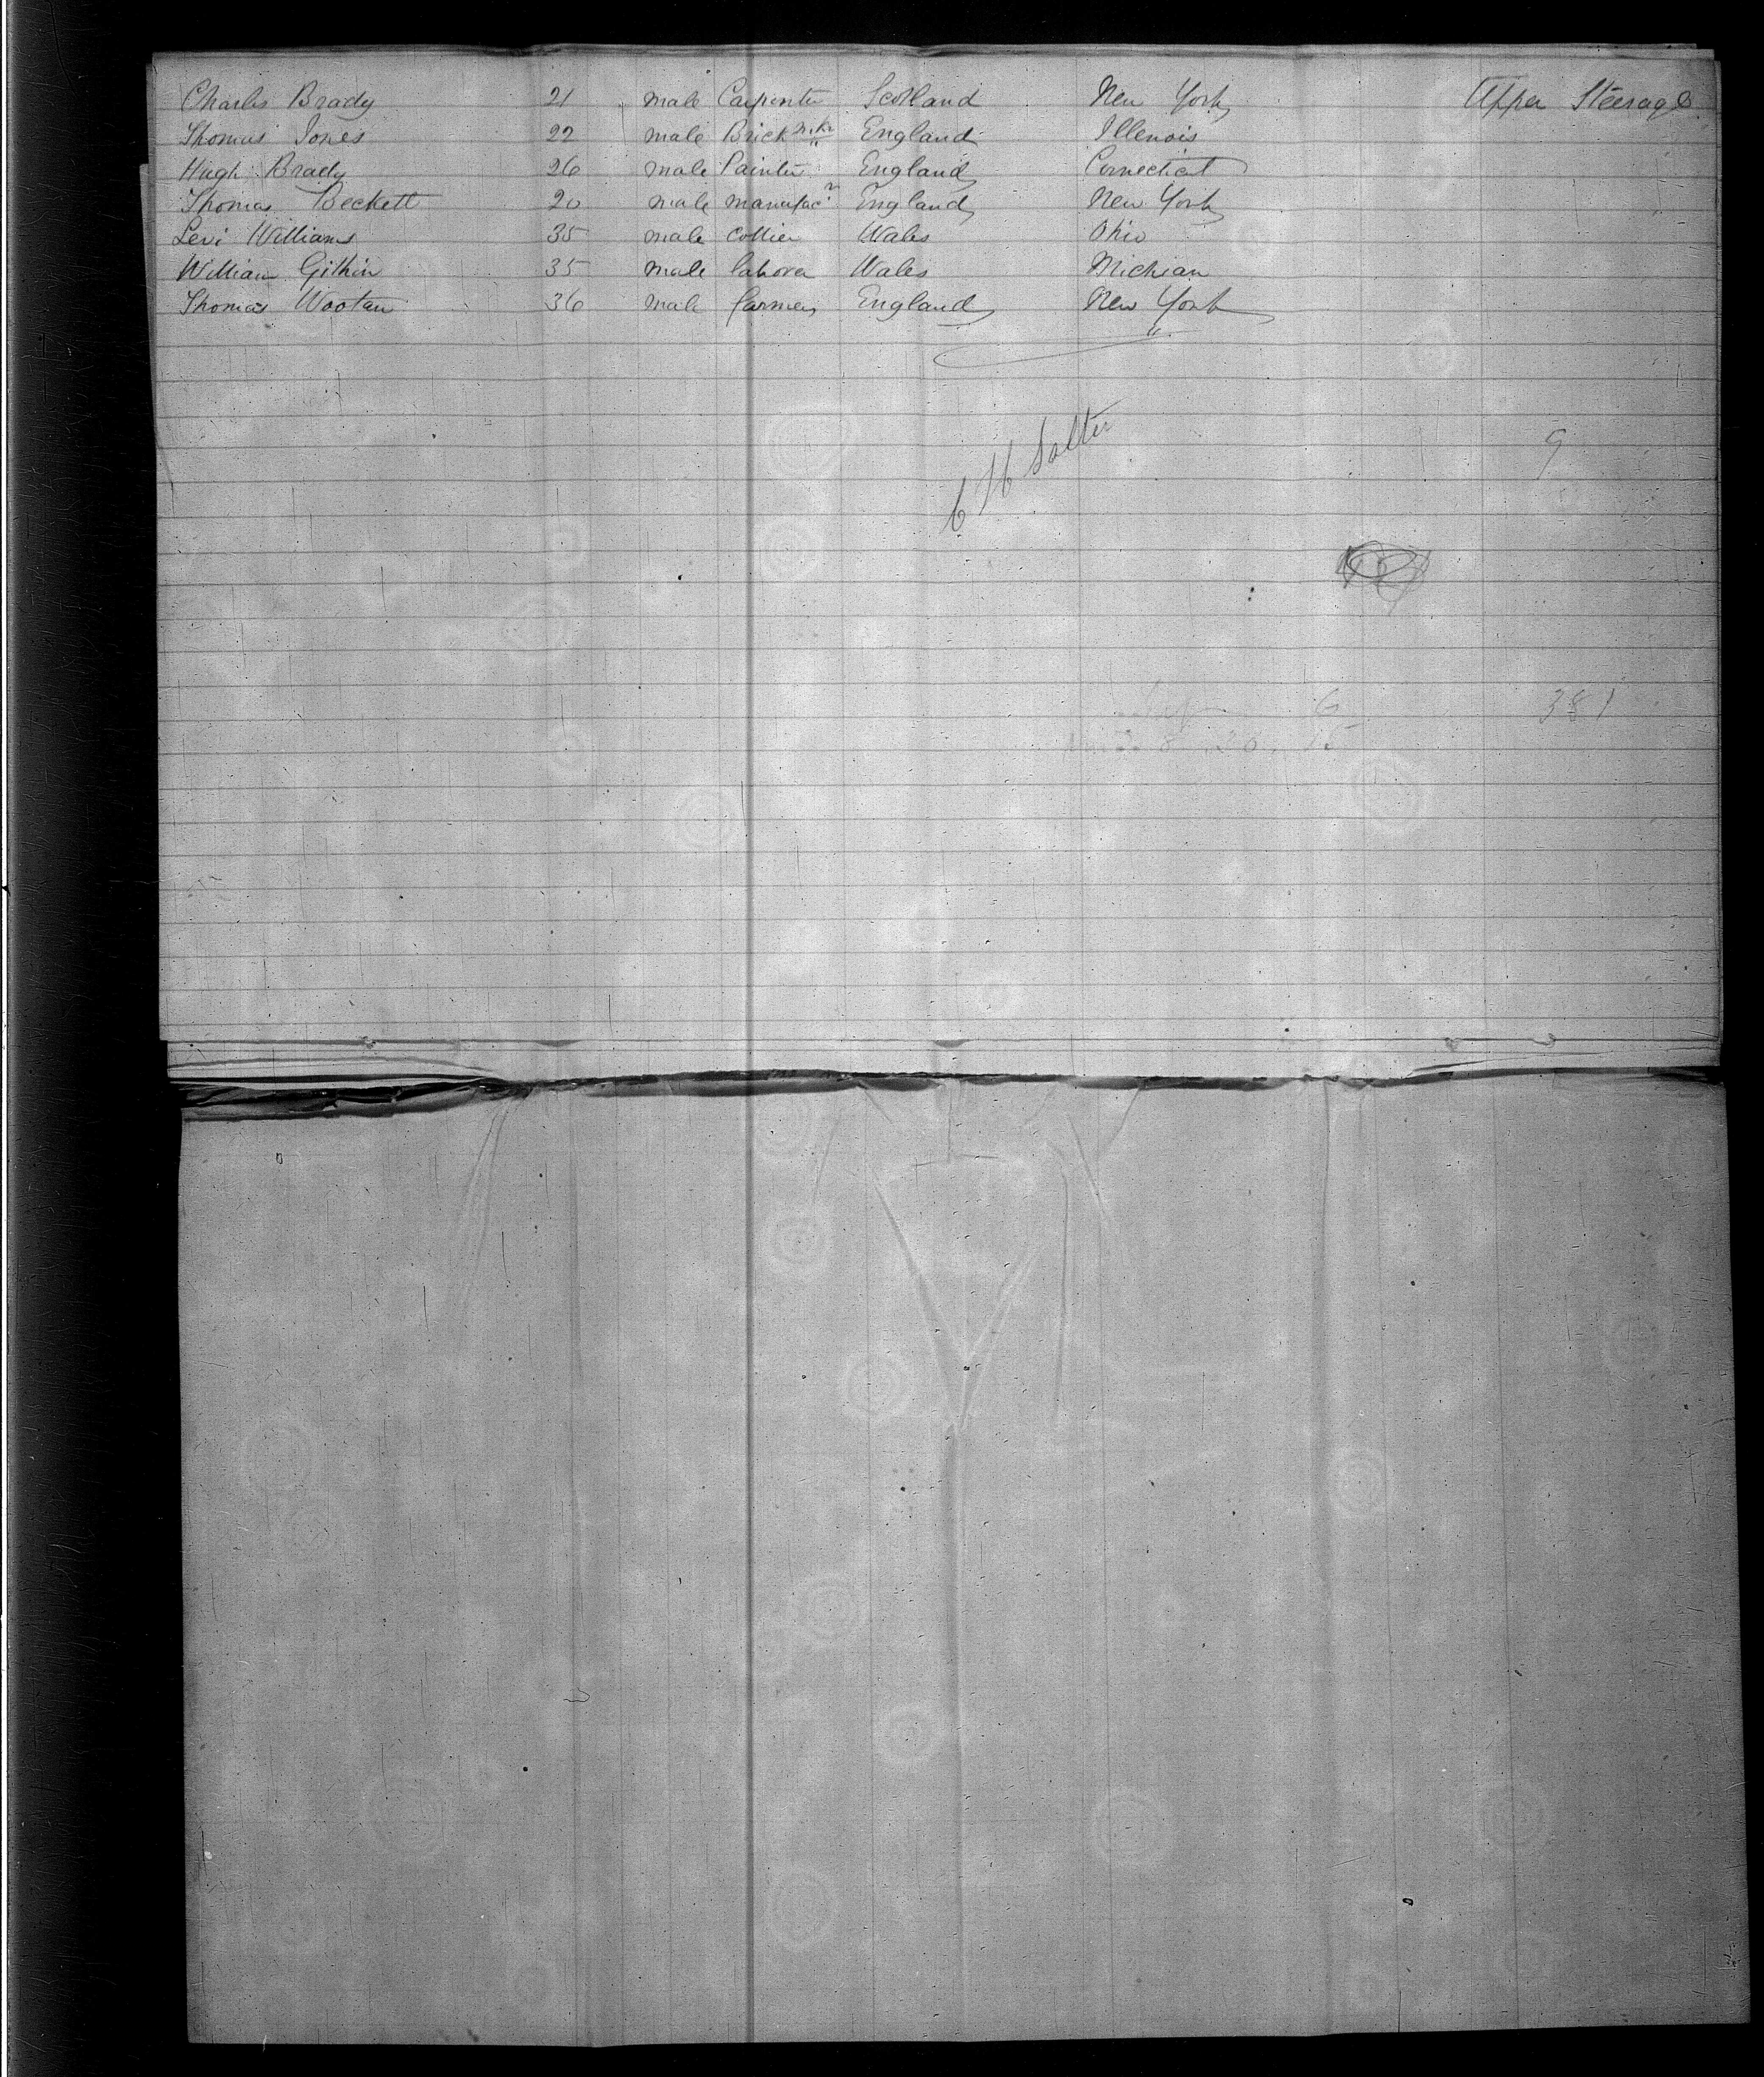 Charles Brady 21 male Carpenter Scotland New York Upper Steerage
Thomas Jones 22 male Brick mkr England Illenois
Hugh Brady 26 male Painter England Connecticut
Thomas Beckett 20 male manufacr England New York
Levi Williams 35 male Collier Wales Ohio
William Githin 35 male labora Wales Michian
Thomas Wootan 36 male farmer England New York
C H Salter
9
6
381